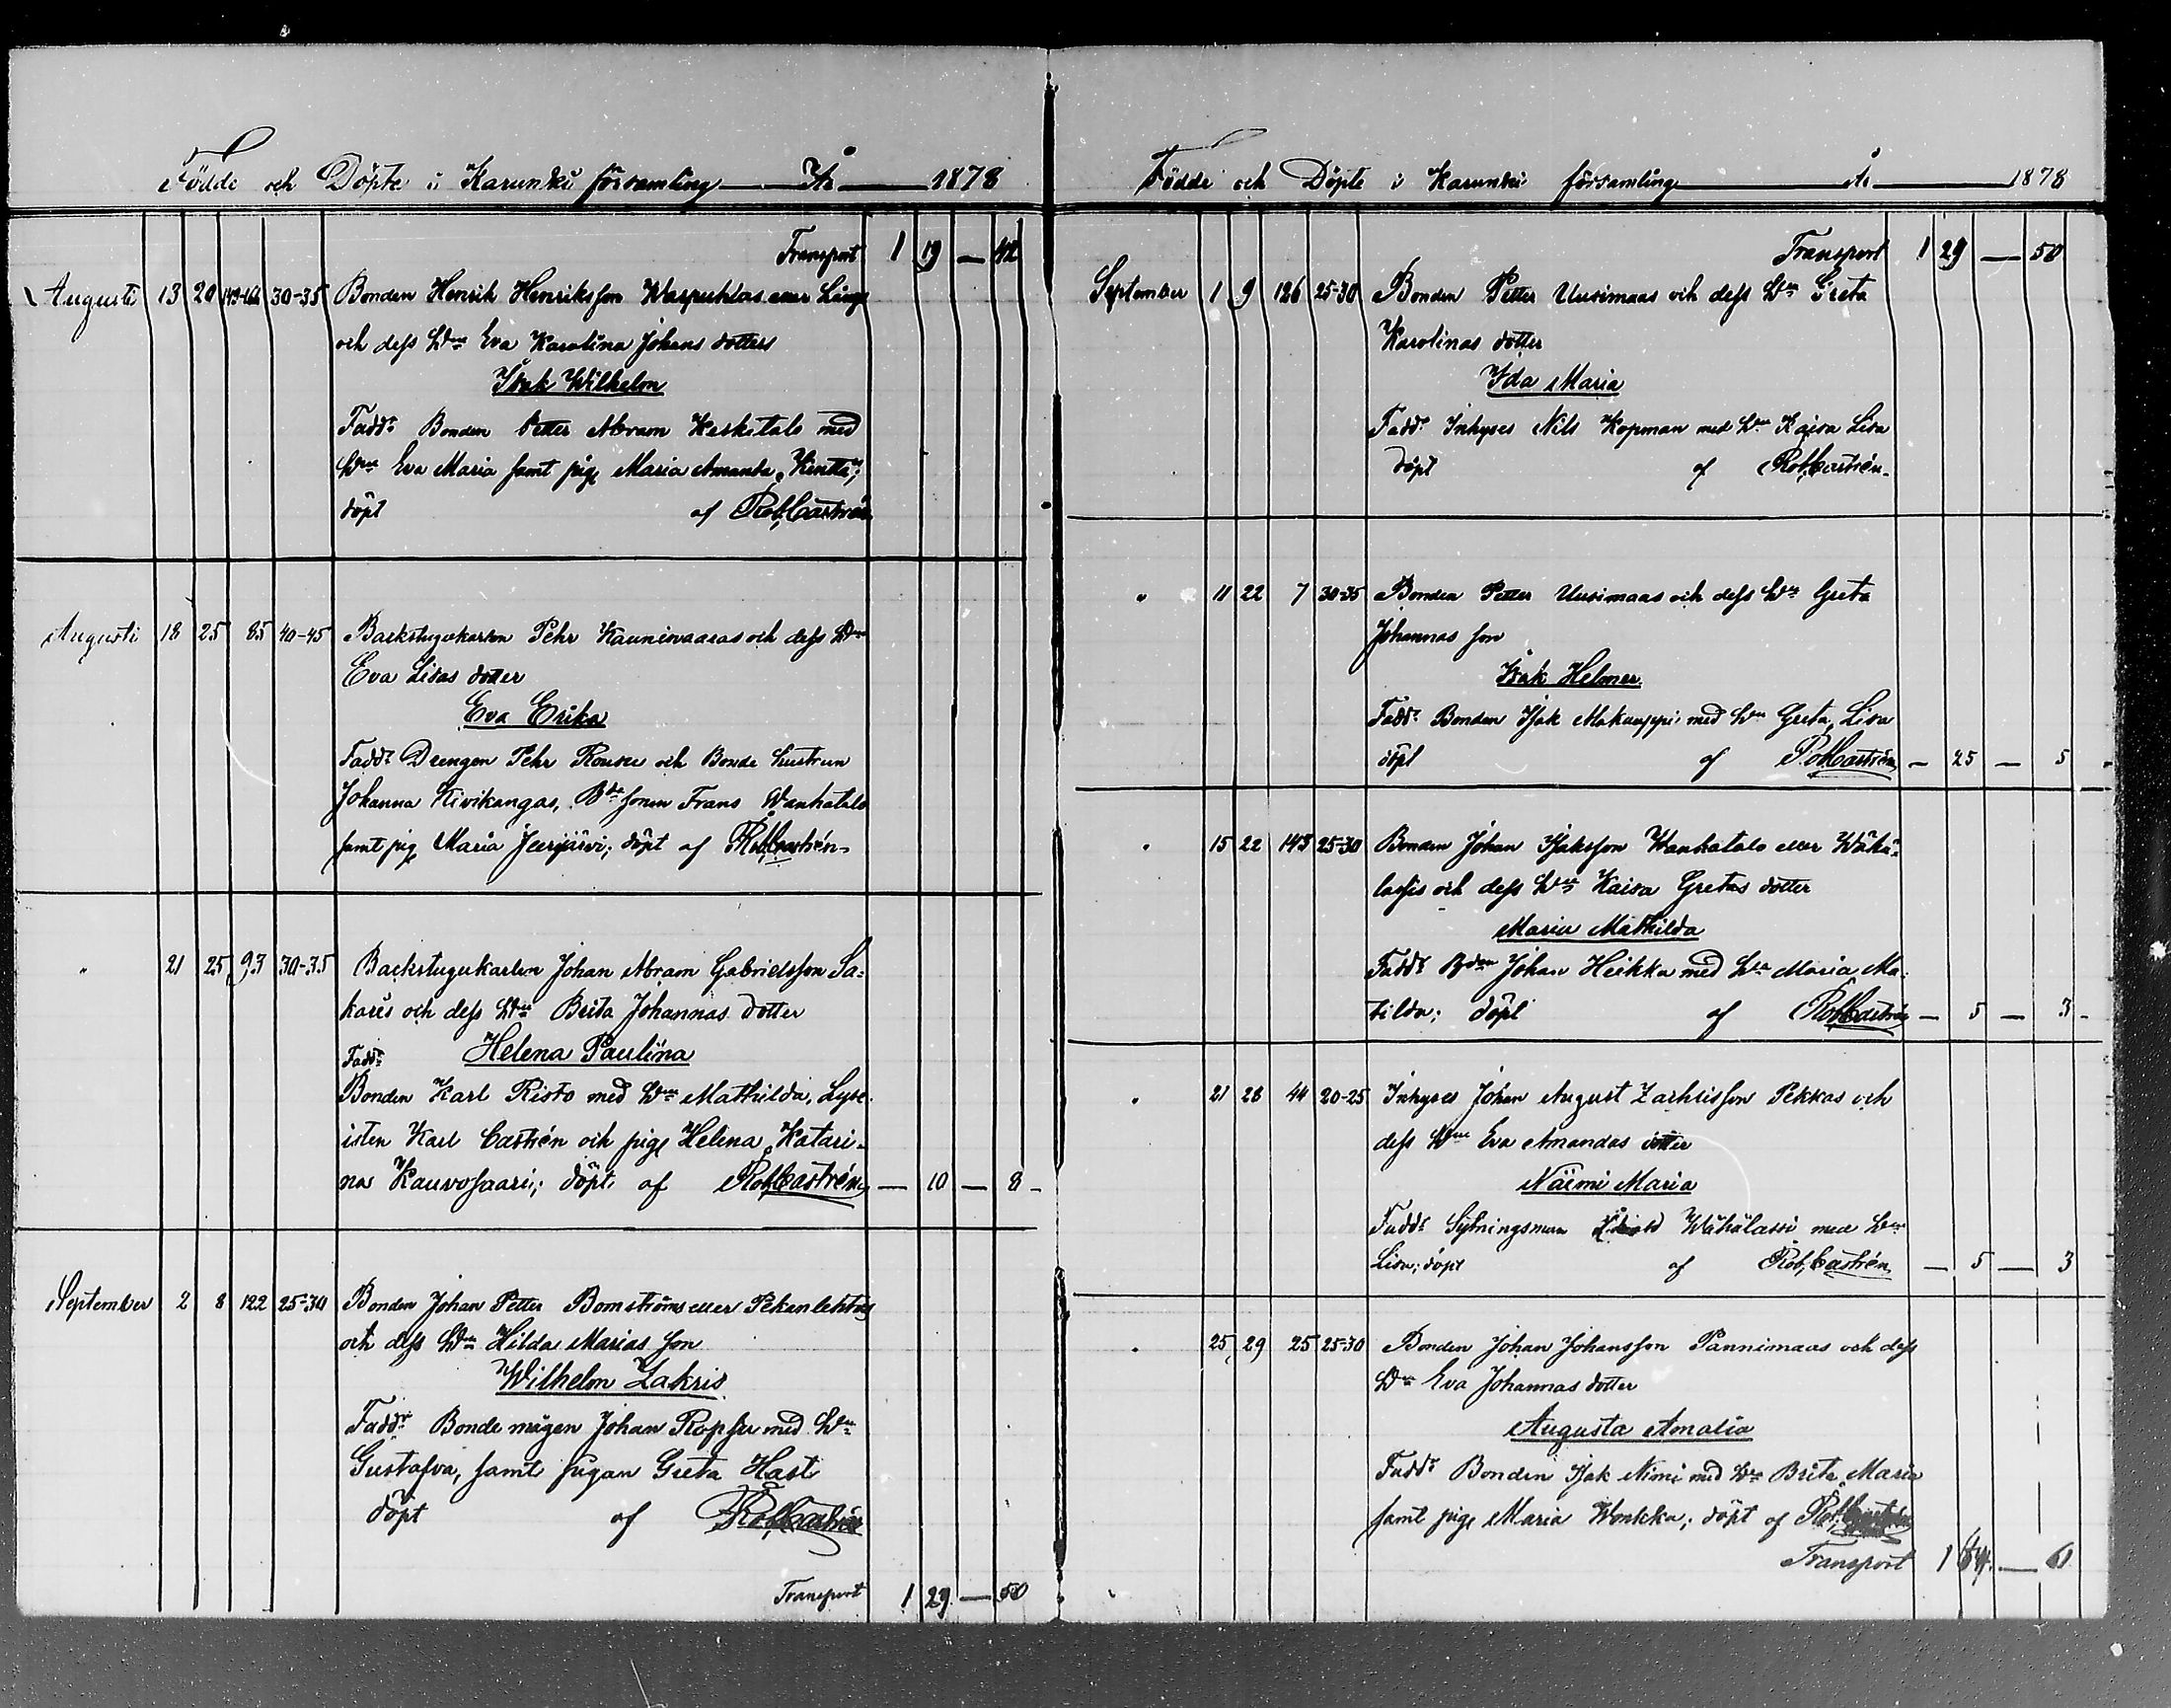 Födde och Döpte i Karunki församling År 1878
Transport 1 19 — 42
Augusti 13 20 30-35 Bonden Henrik Henriksson
och dess Hru Eva Karolina Johans dotters
Isak Wilhelm
Fadd. Bonden Petter Abram Keskitalo med
Hru Eva Maria samt pig. Maria Amanda Kenttä;
döpt af Rob. Castrén
Augusti 18 25 85 40-45 Backstugukarlen Pehr Kaunisvaaras och dess Hru
Eva Lisas dotter
Eva Erika
Fadd. Drengen Pehr Rousu och Bonde hustrun
Johanna Kivikangas, Bde sonen Frans Wanhatalo
samt pig. Maria Jeerjärvi; döpt af Rob. Castrén
" 21 25 93 30-35 Backstugukarlen Johan Abram Gabrielsson Sa-
karis och dess Hru Brita Johannas dotter
Helena Paulina
Fadd.
Bonden Karl Risto med Hru Mathilda, Lyce-
isten Karl Castrén och pig. Helena Katari-
na Kauvosaari; döpt af Rob. Castrén — 10 — 8 -
September 2 8 122 25-30 Bonden Johan Petter Bomströms eller Pekanlehtos
och dess Hru Hilda Marias son
Wilhelm Zakris
Fadd. Bonde mågen Johan med Hru
Gustafva, samt pigan Greta Hast
döpt af Rob. Castrén
Transport 1 29 — 50
Födde och Döpte i Karunki församling År 1878
Transport 1 29 — 50
September 1 9 126 25-30 Bonden Petter Uusimaas och dess Hru Greta
Karolinas dotter
Ida Maria
Fadd. Inhyses Nils Kopman med Hru Kaisa Lisa
döpt af Rob. Castrén
" 11 22 7 30-35 Bonden Petter Uusimaas och dess Hru Greta
Johannas son
Isak Helmer
Fadd. Bonden Isak med Hru Greta Lisa
döpt af Rob. Castrén — 25 — 5
" 15 22 143 25-30 Bonden Johan Isaksson Wanhatalo eller Wähä-
lassis och dess Hru Kaisa Gretas dotter
Maria Mathilda
Fadd. Bden Johan Heikka med Hru Maria Ma-
tilda; döpt af Rob. Castrén — 5 — 3 -
" 21 28 44 20-25 Inhyses Johan August Zachrisson Pekkas och
dess Hru Eva Amandas dotter
Naimi Maria
Fadd. Sytningsman Wähälassi med Hru
Lisa; döpt af Rob. Castrén — 5 — 3
" 25 29 25 25-30 Bonden Johan Johansson Pannimaas och dess
Hru Eva Johannas dotter
Augusta Amalia
Fadd. Bonden Isak Nimi med Hru Brita Maria
samt pig. Maria; döpt af Rob. Castrén
Transport 1 64 — 61